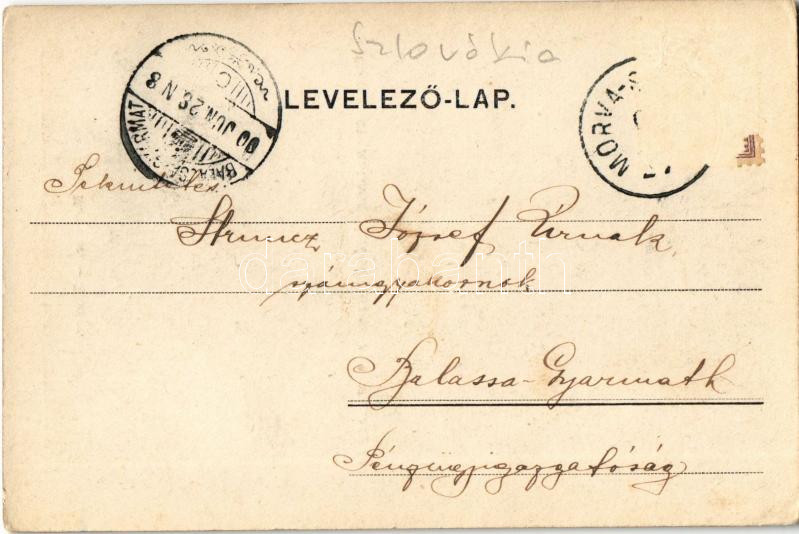 Szlovákia
LEVELEZŐ-LAP.
BALASSAGYARMAT
00 JUN 23 N 8
MORVA-
Tekintetes
Struncz József Úrnak
számgyakornok
Balassa-Gyarmath
Pénzügyigazgatóság
darabanth